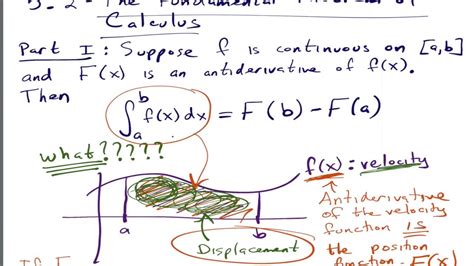 5.2 - The Fundamental Theorem of
Calculus
Part I: Suppose f is continuous on [a,b]
and F(x) is an antiderivative of f(x).
Then
∫_a^b f(x) dx = F(b) - F(a)
what?????
f(x): velocity
Antiderivative
of the velocity
function IS
the position
function - F(x)
a
b
Displacement
If F